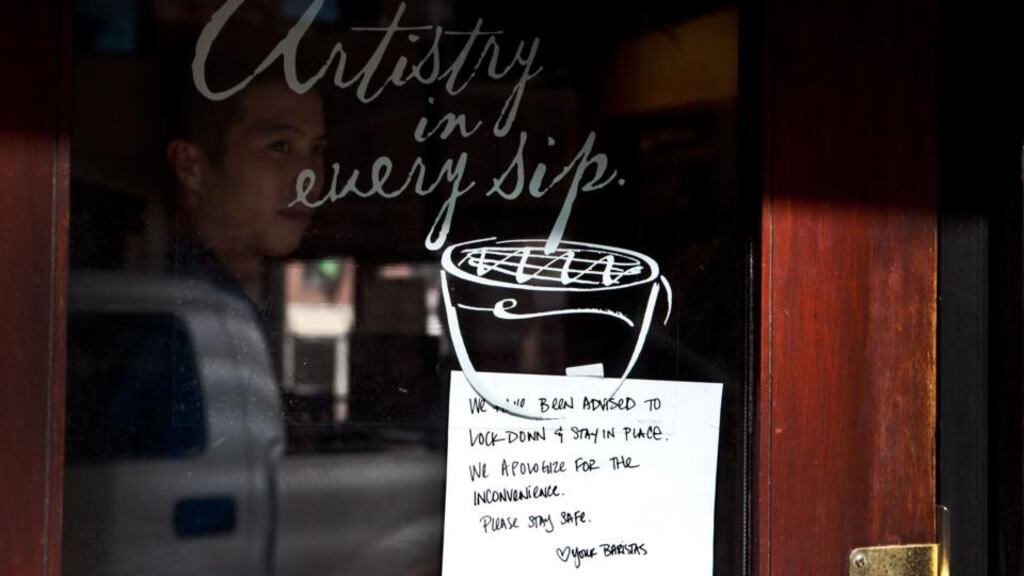 Artistry
in
every sip.
WE HAVE BEEN ADVISED TO
LOCKDOWN & STAY IN PLACE.
WE APOLOGIZE FOR THE
INCONVENIENCE.
PLEASE STAY SAFE.
♡ your BARISTAS